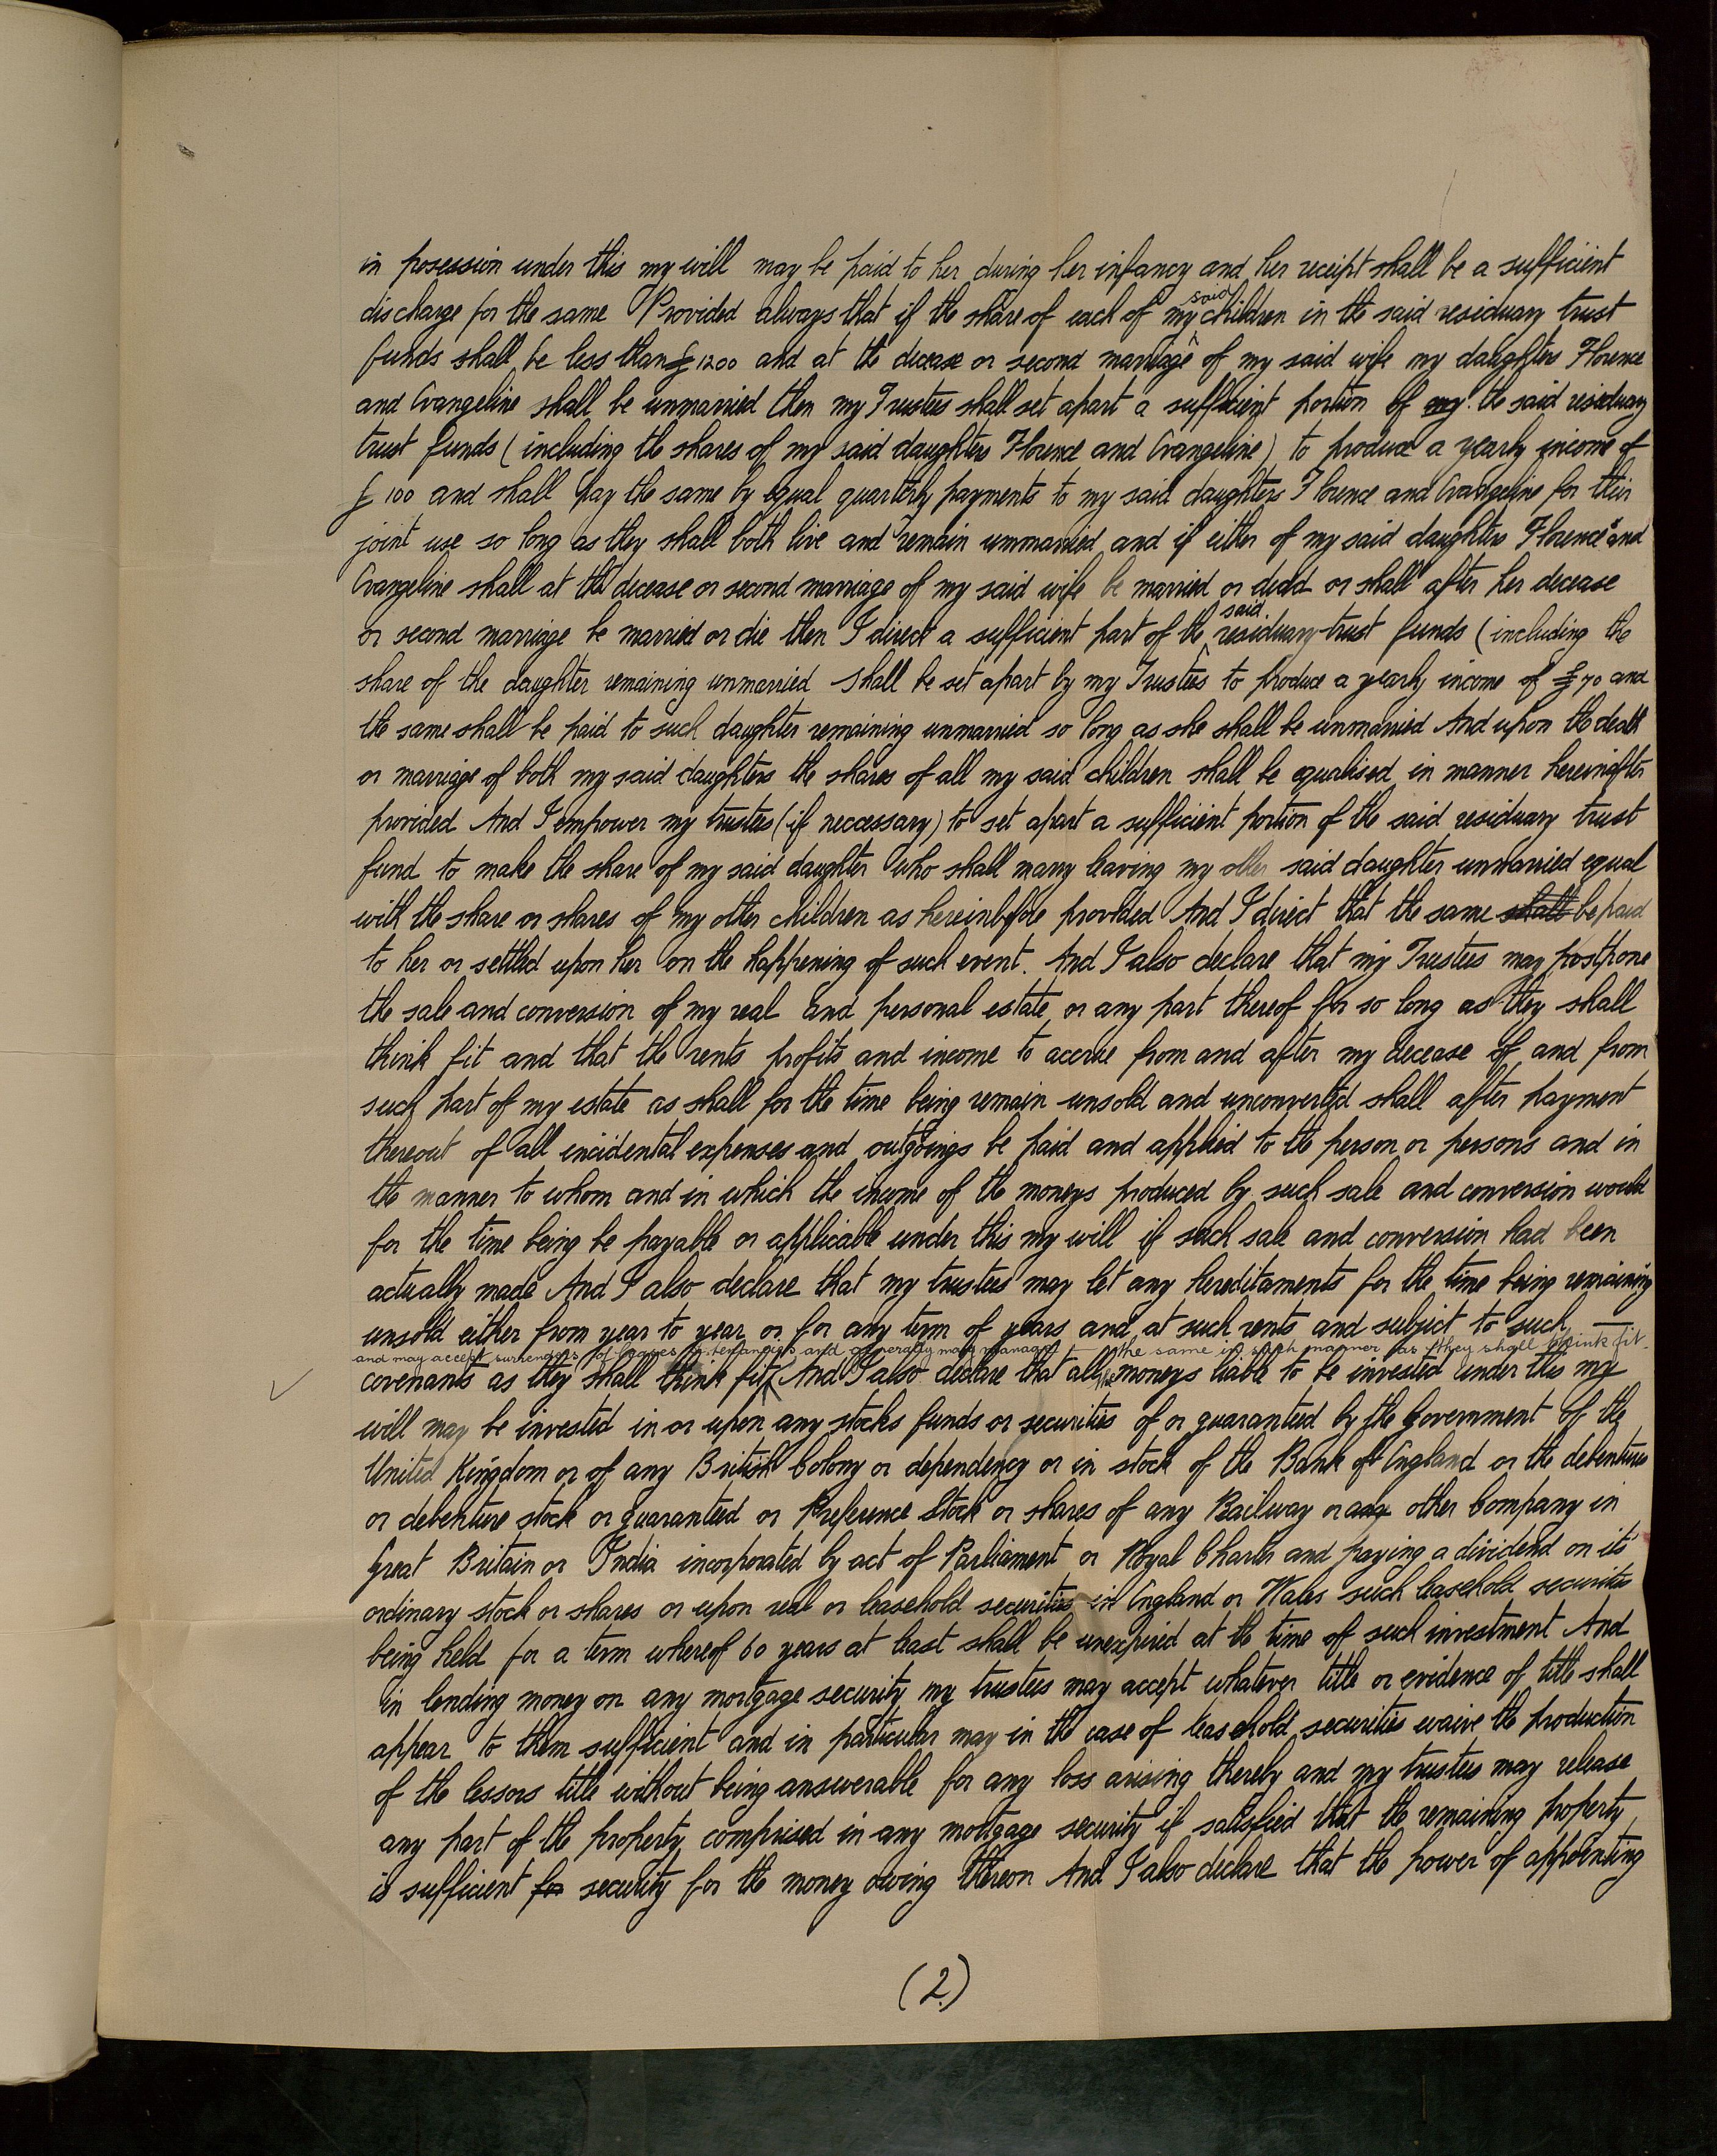 in posession under this my will may be paid to her during her infancy and her receipt shall be a sufficient
discharge for the same Provided always that if the share of each of my said children in the said residuary trust
funds shall be less than £1200 and at the decease or second marriage of my said wife my daughters Florence
and Evangeline shall be unmarried then my Trustees shall set apart a sufficient portion of my the said residuary
trust funds (including the shares of my said daughters Florence and Evangeline) to produce a yearly income of
£100 and shall pay the same by equal quarterly payments to my said daughters Florence and Evangeline for their
joint use so long as they shall both live and remain unmarried and if either of my said daughters Florence and
Evangeline shall at the decease or second marriage of my said wife be married or dead or shall after her decease
or second marriage be married or die then I direct a sufficient part of the said residuary trust funds (including the
share of the daughter remaining unmarried shall be set apart by my Trustees to produce a yearly income of £70 and
the same shall be paid to such daughter remaining unmarried so long as she shall be unmarried And upon the death
or marriage of both my said daughters the shares of all my said children shall be equalised in manner hereinafter
provided And I empower my trustees (if neccessary) to set apart a sufficient portion of the said residuary trust
fund to make the share of my said daughter who shall marry leaving my other said daughter unmarried equal
with the share or shares of my other children as hereinbefore provided And I direct that the same shall be paid
to her or settled upon her on the happening of such event. And I also declare that my Trustees may postpone
the sale and conversion of my real and personal estate or any part thereof for so long as they shall
think fit and that the rents profits and income to accrue from and after my decease of and from
such part of my estate as shall for the time being remain unsold and unconverted shall after payment
thereout of all incidental expenses and outgoings be paid and applied to the person or persons and in
the manner to whom and in which the income of the moneys produced by such sale and conversion would
for the time being be payable or applicable under this my will if such sale and conversion had been
actually made And I also declare that my trustees may let any hereditaments for the time being remaining
unsold either from year to year or for any term of years and at such rents and subject to such
and may accept surrenders of leases & tenancies and generally may manage the same in such manner as they shall think fit
covenants as they shall think fit And I also declare that all the moneys liable to be invested under this my
will may be invested in or upon any stocks funds or securities of or guaranteed by the Government of the
United Kingdom or of any British Colony or dependency or in stock of the Bank of England or the debentures
or debenture stock or guaranteed or Preference Stock or shares of any Railway or any other Company in
Great Britain or India incorporated by act of Parliament or Royal Charter and paying a dividend on its
ordinary stock or shares or upon real or leasehold securities in England or Wales such leasehold securities
being held for a term whereof 60 years at least shall be unexpired at the time of such investment And
in lending money on any mortgage security my trustees may accept whatever title or evidence of title shall
appear to them sufficient and in particular may in the case of leasehold securities waive the production
of the lessors title without being answerable for any loss arising thereby and my trustees may release
any part of the property comprised in any mortgage security if satisfied that the remaining property
is sufficient for security for the money owing thereon And I also declare that the power of appointing
(2.)